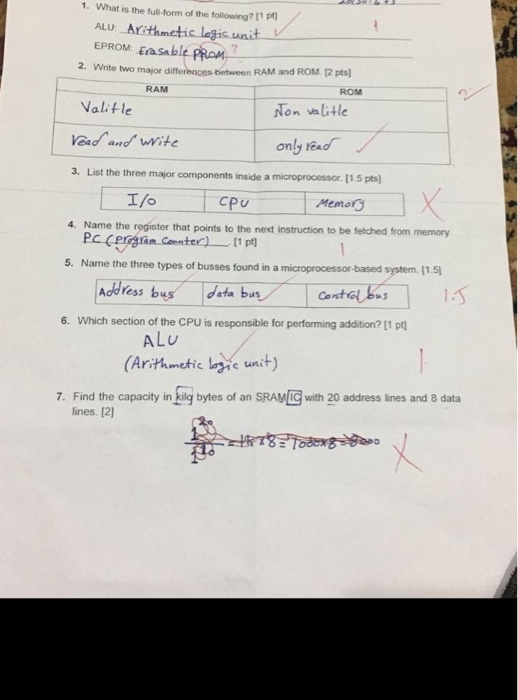 1. What is the full-form of the following? [1 pt]
ALU: Arithmetic logic unit
1
EPROM: Erasable PROM ?
2. Write two major differences between RAM and ROM. [2 pts]
RAM ROM
2
Valitle Non valitle
read and write only read
3. List the three major components inside a microprocessor. [1.5 pts]
I/o CPU Memory
4. Name the register that points to the next instruction to be fetched from memory
P.C (program Counter) [1 pt]
1
5. Name the three types of busses found in a microprocessor-based system. [1.5]
Address bus data bus Control bus
1.5
6. Which section of the CPU is responsible for performing addition? [1 pt]
ALU
(Arithmetic logic unit)
1
7. Find the capacity in kilo bytes of an SRAM IC with 20 address lines and 8 data
lines. [2]